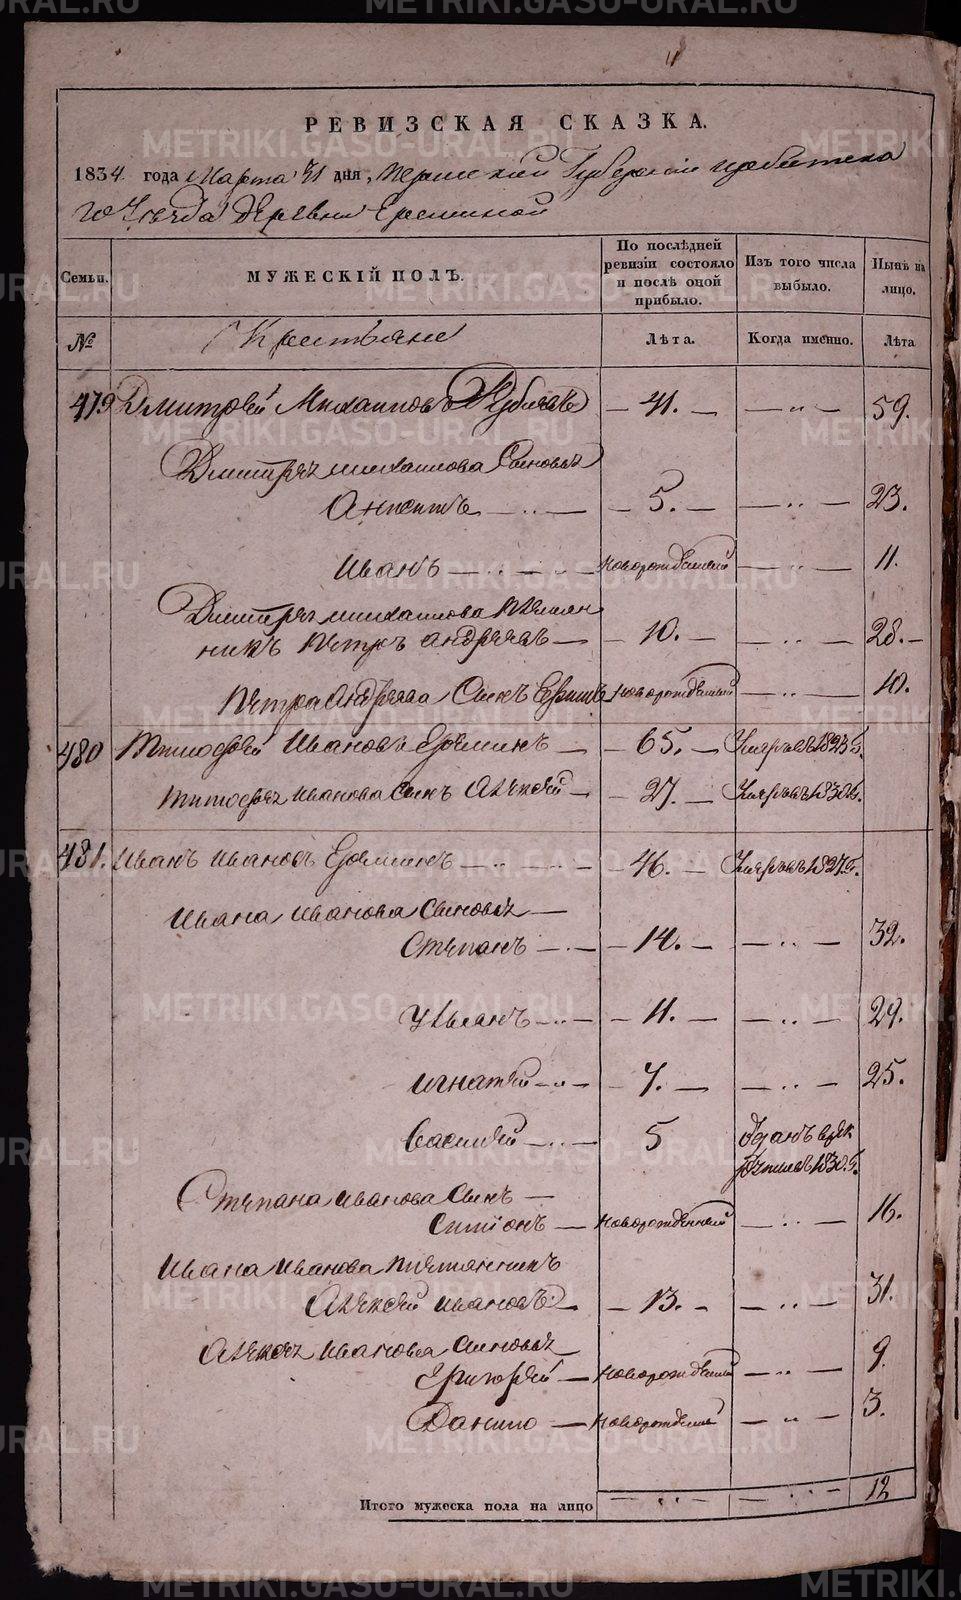 РЕВИЗСКАЯ СКАЗКА.
1834 года Марта 31 дня, Пермской Губернии Ирбитска
го Уезда деревни Ереминой
Семьи. МУЖЕСКІЙ ПОЛЪ. По послѣдней ревизіи состояло и послѣ оной прибыло. Изъ того числа выбыло. Нынѣ на лицо.
№ Крестьяне Лѣта. Когда именно. Лѣта
479 Дмитрей Михаиловъ — 41. — — „ — 59.
Дмитрея михаилова Сыновья
Аникита — 5. — — „ — 23.
Иванъ — новорожденный — „ — 11.
Дмитрея михаилова племян
никъ Петръ андреевъ — 10. — — „ — 28. —
Петра Андреева Сынъ новорожденный — „ — 10.
480 Тимофей Ивановъ Еремин — 65. — Умеръ въ 1823 г.
Тимофея иванова Сынъ Алексей — 27. — Умеръ въ 1830 г.
481. Иванъ Ивановъ Еремин — 46. — Умеръ въ 1827 г.
Ивана Иванова Сыновья —
Степанъ — 14. — — „ — 32.
Ульянъ — 11. — — „ — 29.
Игнатей — 7. — — „ — 25.
Василей — 5 Отданъ в рек
руты въ 1830 г.
Степана иванова Сынъ —
Симионъ — новорожденный — „ — 16.
Ивана Иванова племянникъ
Алексей ивановъ — 13. — — „ — 31.
Алексея иванова сыновья
Григорей — новорожденный — „ — 9.
Данило — новорожденный — „ — 3.
Итого мужеска пола на лицо — „ — — „ — 12
METRIKI.GASO-URAL.RU